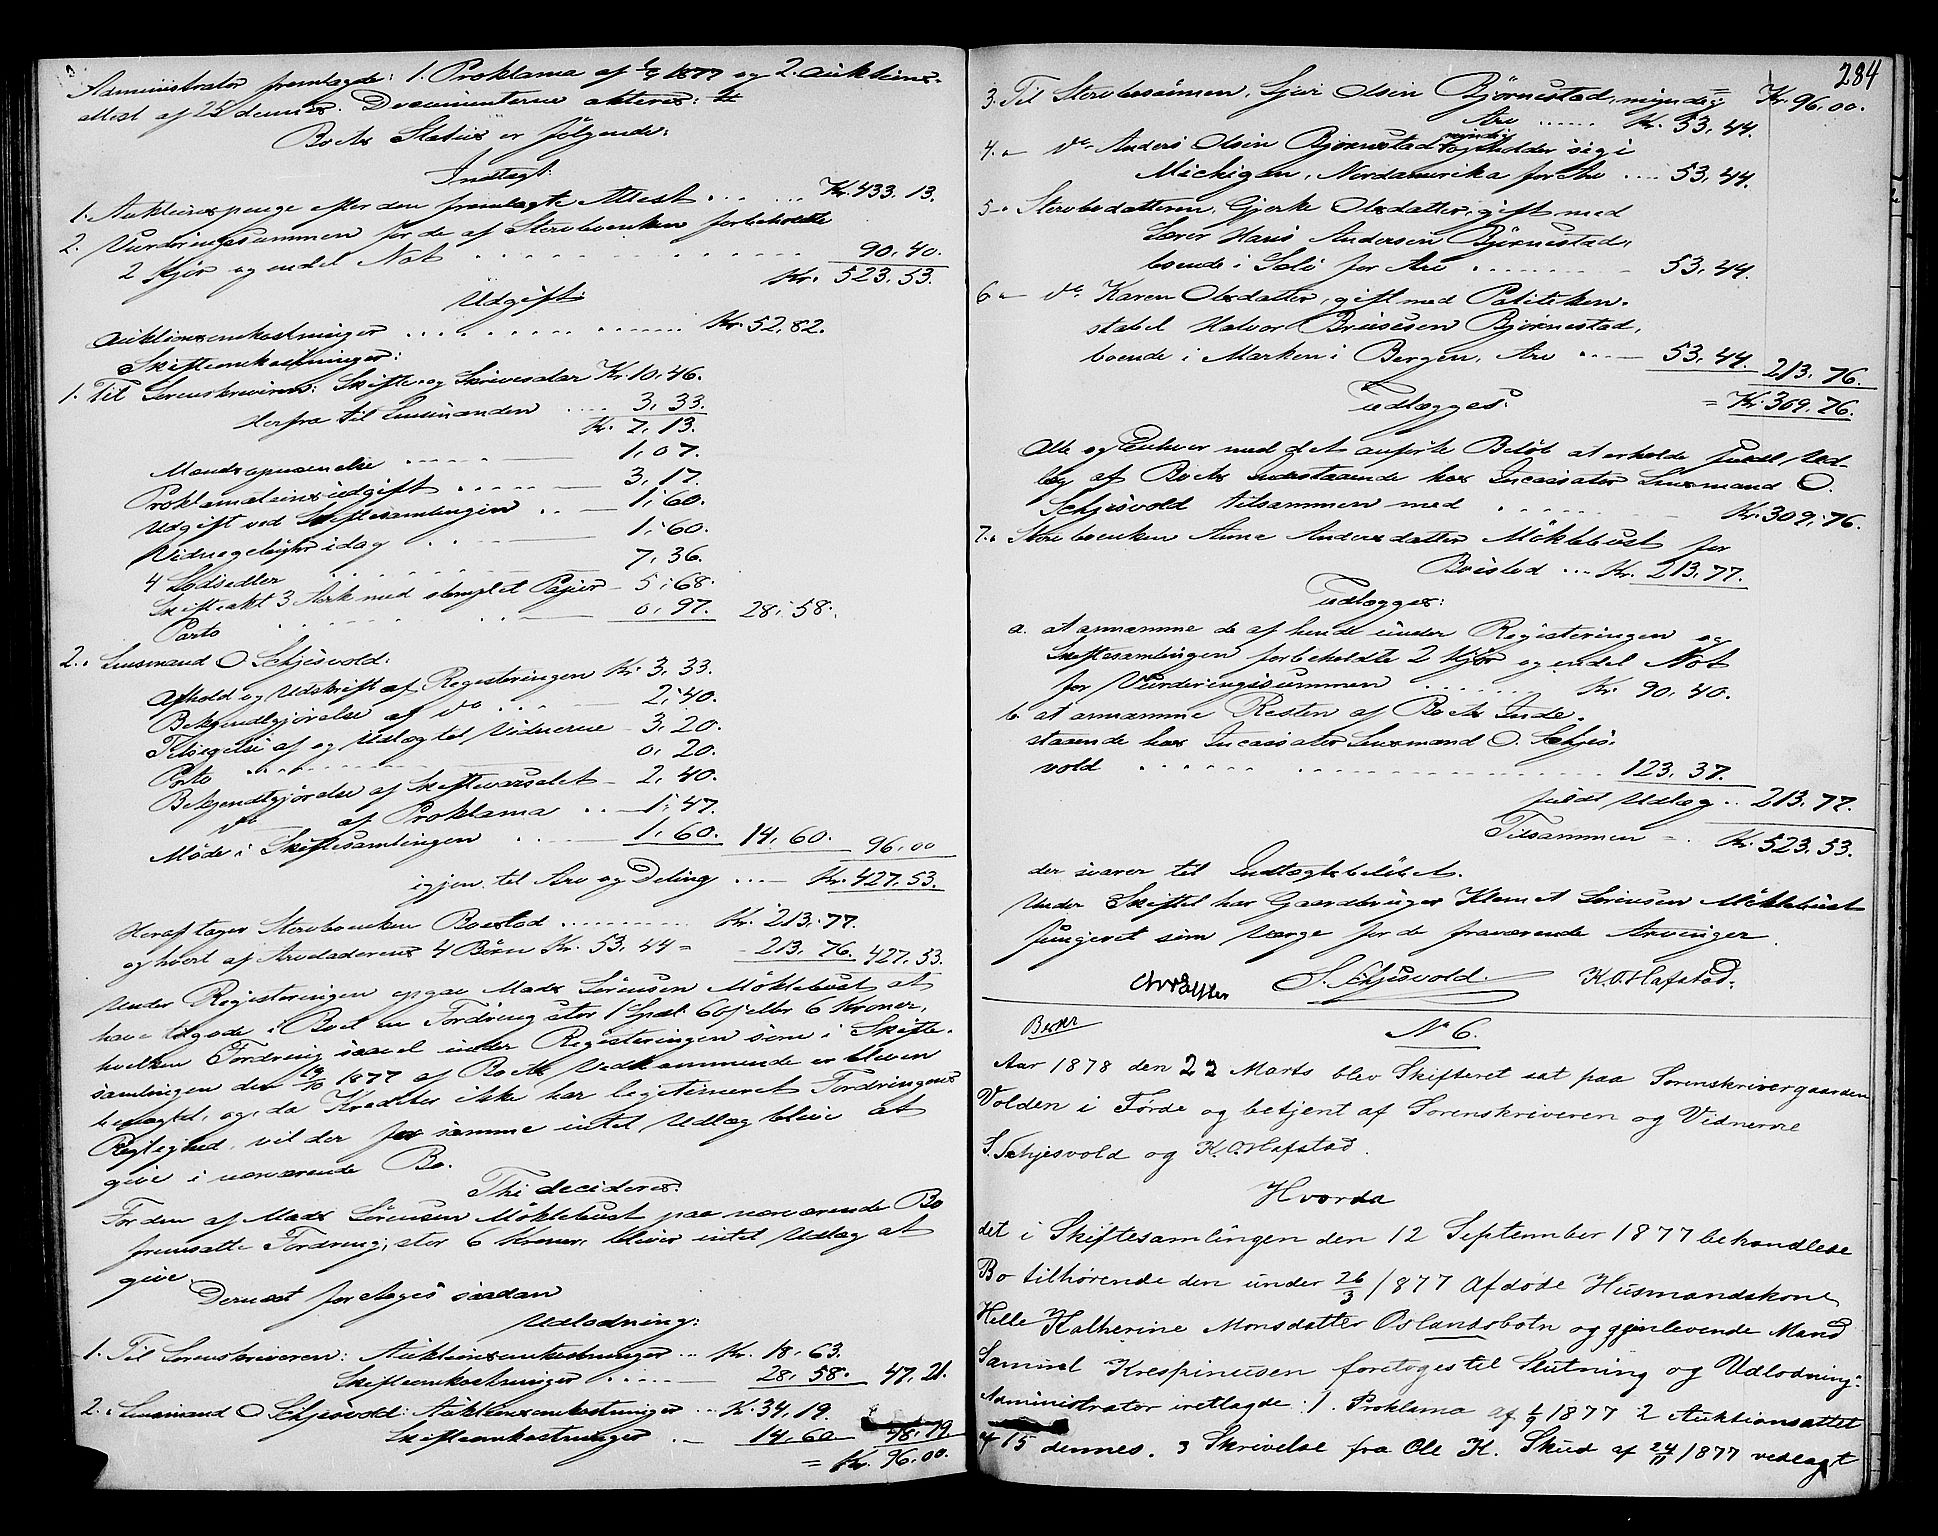 Administrator fremlagde: 1. Proklama af 1/9 1877 og 2. Auktions-
attest af 22 dennes. Documenterne akteres: #
Boets Status er følgende:
Indtægt:
1. Auktionspenge efter den fremlagte Attest . . . Kr. 433, 13.
2. Vurderingssummen for de af Sterboenken forbeholdte
2 Kjør og endel Not . . . 90, 40.
Kr. 523, 53.
Udgift:
Auktionsomkostninger . . . Kr. 52, 82.
Skifteomkostninger:
1. Til Sorenskriveren: Skifte- og Skriversalær Kr. 10, 46.
derfra til Lensmanden . . . 3, 33.
Kr. 7, 13.
1, 07.
Proklamationsudgift . . . 3, 17.
Udgift ved Skiftesamlingen . . . 1, 60.
Vidnegebyhr idag . . . 1, 60.
4 Lodsedler . . . 7, 36.
Skifteakt 3 Ark med stemplet Papir 5, 68.
Porto . . . 0, 97. 28, 58.
2. Lensmand O Schjesvold:
Afhold og Udskrift af Registeringen Kr. 3, 33.
Bekjendtgjørelse af do . . . 2, 40.
Tilsigelse af og Udlagt til Vidnerne 3, 20.
Porto . . . 0, 20.
Bekjendtgjørelse af Skiftevarselet 2, 40.
do af Proklama . . . 1, 47.
Møde i Skiftesamlingen . . . 1, 60. 14, 60. 96, 00
igjen til Arv og Deling . . . Kr. 427, 53.
Heraf tager Sterboenken Boeslod . . . Kr. 213, 77.
og hvert af Arveladerens 4 Børn Kr. 53, 44 = 213, 76. 427, 53.
Under Registeringen opgav Mads Sørensen Møklebust at
have tilgode i Boet en Fordring stor 1 Spd. 60 ß eller 6 Kroner,
hvilken Fordring saavel under Registeringen som i Skifte-
samlingen den 19/10 1877 af Boets Vedkommende er bleven
benægtet, og da Kreditor ikke har legitimeret Fordringens
Rigtighed, vil der for samme intet Udlæg blive at
give i nærværende Bo.
Thi decideres:
For den af Mads Sørensen Møklebust paa nærværende Bo
fremsatte Fordring, stor 6 Kroner, bliver intet Udlæg at
give.
Dernæst foretoges saadan
Udlodning:
1. Til Sorenskriveren: Auktionsomkostninger . . Kr. 18, 63.
Skifteomkostninger . . . 28, 58. 47, 21.
2. Lensmand O Schjesvold: Auktionsomkostninger . . Kr. 34, 19.
Skifteomkostninger . . 14, 60. 48, 79
= Kr. 96, 00.
284
Kr. 96, 00.
3. Til Sterbosønnen, Sjur Olsen Bjørnestad, myndig =
Arv . . . Kr. 53, 44.
4. " do Anders Olsen Bjørnestad myndig og opholder sig i
Michigan, Nordamerika for Arv . . . 53, 44.
5. " Sterbodatteren, Gjerke Olsdatter, gift med
Lærer Hans Andersen Bjørnestad,
boende i for Arv . . . 53, 44.
6. " do Karen Olsdatter, gift med Politikon-
stabel Halvor Brusesen Bjørnestad,
boende i Marken i Bergen, Arv . . . 53, 44. 213, 76.
Udlægges: = Kr. 309, 76.
Alle og Enhver med det anførte Beløb at erholde fuldt Ud-
læg af Boets Indestaaende hos Incassator Lensmand O.
Schjesvold tilsammen med . . . Kr. 309, 76.
7. Sterboenken Anne Andersdatter Møklebust for
Boeslod . . . Kr. 213, 77.
Udlægges:
a. at annamme de af hende under Registeringen og
Skiftesamlingen forbeholdte 2 Kjør og endel Not
for Vurderingssummen . . . Kr. 90, 40.
b. at annamme Resten af Boets Inde-
staaende hos Incassator Lensmand O. Schjes-
vold . . . 123, 37.
fuldt Udlæg . . 213, 77.
Tilsammen = . Kr. 523, 53.
der svarer til Indtægtsbeløbet.
Under Skiftet har Gaardbruger Klemet Sørensen Møklebust
fungeret som Værge for de fraværende Arvinger.
S. Schjesvold. K. O. Hafstad.
No 6.
Aar 1878 den 22 Marts blev Skifteret sat paa Sorenskrivergaarden
Volden i Førde og betjent af Sorenskriveren og Vidnerne
S. Schjesvold og K. O. Hafstad.
Hvorda
det i Skiftesamlingen den 12 September 1877 behandlede
Bo tilhørende den under 26/3 1877 afdøde Husmandskone
Helle Katherine Monsdatter Oslandsbotn og gjenlevende Mand
Samuel Krespinusen foretoges til Slutning og Udlodning.
Administrator iretlagde: 1. Proklama af 1/9 1877 2 Auktionsattest
af 15 dennes. 3 Skrivelse fra Ole K. Skud af 24/11 1877 vedlagt